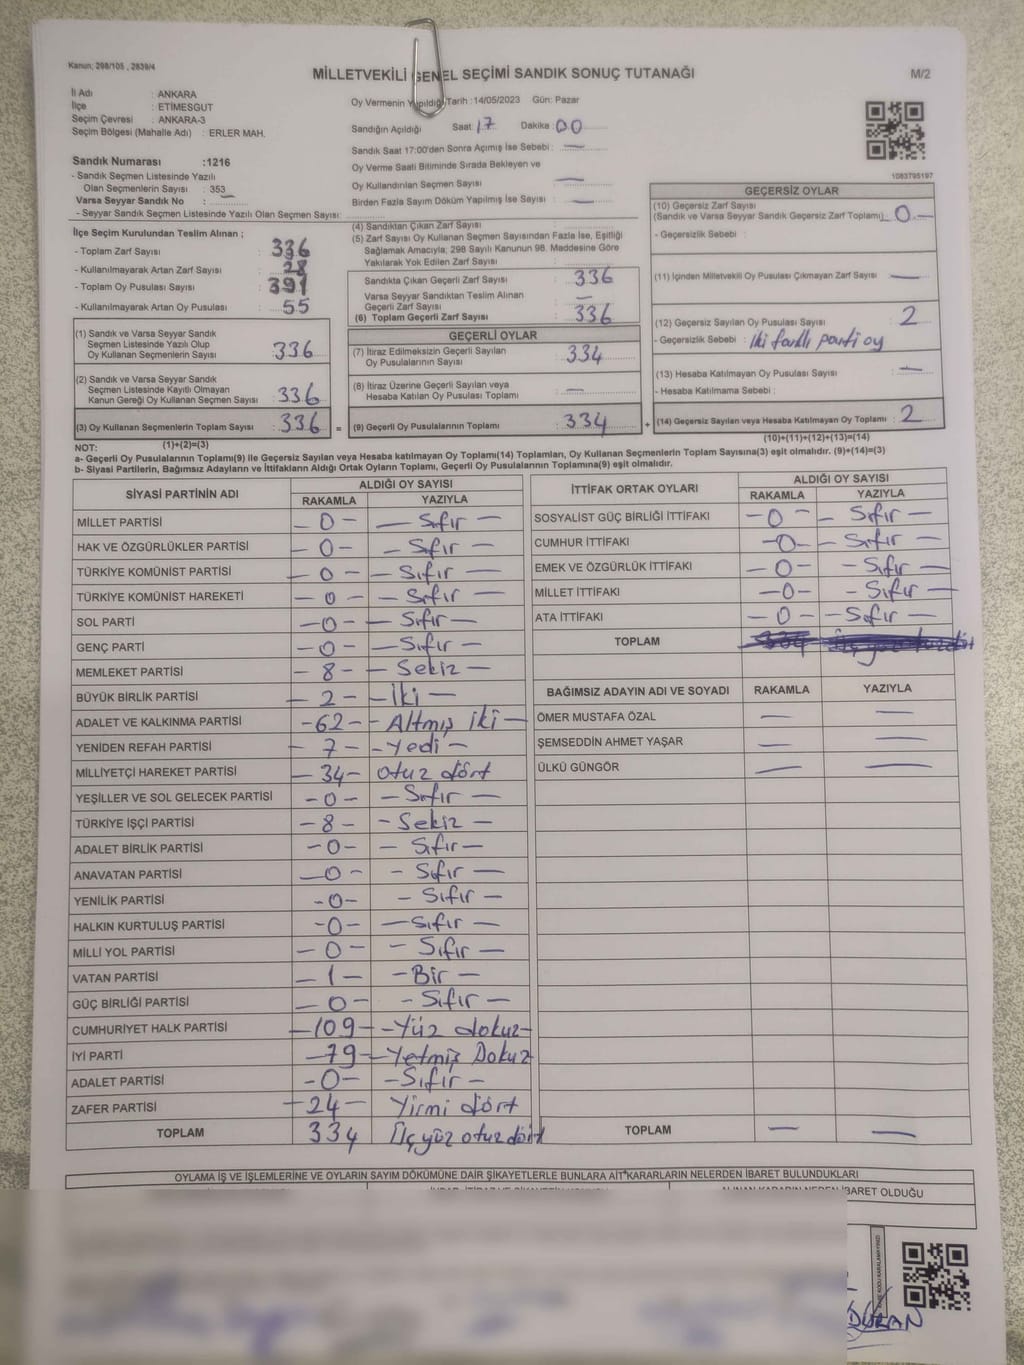 Kanun; 298/105 , 2839/4
MİLLETVEKİLİ GENEL SEÇİMİ SANDIK SONUÇ TUTANAĞI
M/2
İl Adı : ANKARA
İlçe : ETİMESGUT
Seçim Çevresi : ANKARA-3
Seçim Bölgesi (Mahalle Adı) : ERLER MAH.
Oy Vermenin Yapıldığı Tarih :14/05/2023 Gün: Pazar
Sandığın Açıldığı Saat 17 Dakika : 00
Sandık Saat 17:00'den Sonra Açımış İse Sebebi : —
Oy Verme Saati Bitiminde Sırada Bekleyen ve
Oy Kullandırılan Seçmen Sayısı —
Birden Fazla Sayım Döküm Yapılmış İse Sayısı : —
1083795197
Sandık Numarası :1216
- Sandık Seçmen Listesinde Yazılı
Olan Seçmenlerin Sayısı : 353
Varsa Seyyar Sandık No :
- Seyyar Sandık Seçmen Listesinde Yazılı Olan Seçmen Sayısı:
İlçe Seçim Kurulundan Teslim Alınan ;
- Toplam Zarf Sayısı : 336
- Kullanılmayarak Artan Zarf Sayısı : 28
- Toplam Oy Pusulası Sayısı : 391
- Kullanılmayarak Artan Oy Pusulası : 55
(1) Sandık ve Varsa Seyyar Sandık
Seçmen Listesinde Yazılı Olup
Oy Kullanan Seçmenlerin Sayısı : 336
(2) Sandık ve Varsa Seyyar Sandık
Seçmen Listesinde Kayıtlı Olmayan
Kanun Gereği Oy Kullanan Seçmen Sayısı : 336
(3) Oy Kullanan Seçmenlerin Toplam Sayısı : 336 =
(1)+(2)=(3)
(4) Sandıktan Çıkan Zarf Sayısı :
(5) Zarf Sayısı Oy Kullanan Seçmen Sayısından Fazla İse, Eşitliği
Sağlamak Amacıyla; 298 Sayılı Kanunun 98. Maddesine Göre
Yakılarak Yok Edilen Zarf Sayısı :
Sandıkta Çıkan Geçerli Zarf Sayısı : 336
Varsa Seyyar Sandıktan Teslim Alınan
Geçerli Zarf Sayısı : —
(6) Toplam Geçerli Zarf Sayısı : 336
GEÇERLİ OYLAR
(7) İtiraz Edilmeksizin Geçerli Sayılan
Oy Pusulalarının Sayısı : 334
(8) İtiraz Üzerine Geçerli Sayılan veya
Hesaba Katılan Oy Pusulası Toplamı : —
(9) Geçerli Oy Pusulalarının Toplamı : 334 +
GEÇERSİZ OYLAR
(10) Geçersiz Zarf Sayısı
(Sandık ve Varsa Seyyar Sandık Geçersiz Zarf Toplamı) 0 —
- Geçersizlik Sebebi :
(11) İçinden Milletvekili Oy Pusulası Çıkmayan Zarf Sayısı : —
(12) Geçersiz Sayılan Oy Pusulası Sayısı : 2
- Geçersizlik Sebebi : İki farklı parti oy
(13) Hesaba Katılmayan Oy Pusulası Sayısı : —
- Hesaba Katılmama Sebebi :
(14) Geçersiz Sayılan veya Hesaba Katılmayan Oy Toplamı : 2
(10)+(11)+(12)+(13)=(14)
NOT:
a- Geçerli Oy Pusulalarının Toplamı(9) ile Geçersiz Sayılan veya Hesaba katılmayan Oy Toplamı(14) Toplamları, Oy Kullanan Seçmenlerin Toplam Sayısına(3) eşit olmalıdır. (9)+(14)=(3)
b- Siyasi Partilerin, Bağımsız Adayların ve İttifakların Aldığı Ortak Oyların Toplamı, Geçerli Oy Pusulalarının Toplamına(9) eşit olmalıdır.
SİYASİ PARTİNİN ADI ALDIĞI OY SAYISI
RAKAMLA YAZIYLA
MİLLET PARTİSİ — 0 — — Sıfır —
HAK VE ÖZGÜRLÜKLER PARTİSİ — 0 — — Sıfır —
TÜRKİYE KOMÜNİST PARTİSİ — 0 — — Sıfır —
TÜRKİYE KOMÜNİST HAREKETİ — 0 — — Sıfır —
SOL PARTİ — 0 — — Sıfır —
GENÇ PARTİ — 0 — — Sıfır —
MEMLEKET PARTİSİ — 8 — — Sekiz —
BÜYÜK BİRLİK PARTİSİ — 2 — — İki —
ADALET VE KALKINMA PARTİSİ — 62 — — Altmış iki —
YENİDEN REFAH PARTİSİ — 7 — — Yedi —
MİLLİYETÇİ HAREKET PARTİSİ — 34 — otuz dört
YEŞİLLER VE SOL GELECEK PARTİSİ — 0 — — Sıfır —
TÜRKİYE İŞÇİ PARTİSİ — 8 — — Sekiz —
ADALET BİRLİK PARTİSİ — 0 — — Sıfır —
ANAVATAN PARTİSİ — 0 — — Sıfır —
YENİLİK PARTİSİ — 0 — — Sıfır —
HALKIN KURTULUŞ PARTİSİ — 0 — — Sıfır —
MİLLİ YOL PARTİSİ — 0 — — Sıfır —
VATAN PARTİSİ — 1 — — Bir —
GÜÇ BİRLİĞİ PARTİSİ — 0 — — Sıfır —
CUMHURİYET HALK PARTİSİ — 109 — — Yüz dokuz —
İYİ PARTİ — 79 — Yetmiş Dokuz
ADALET PARTİSİ — 0 — — Sıfır —
ZAFER PARTİSİ — 24 — Yirmi dört
TOPLAM 334 Üç yüz otuz dört
İTTİFAK ORTAK OYLARI ALDIĞI OY SAYISI
RAKAMLA YAZIYLA
SOSYALİST GÜÇ BİRLİĞİ İTTİFAKI — 0 — — Sıfır —
CUMHUR İTTİFAKI — 0 — — Sıfır —
EMEK VE ÖZGÜRLÜK İTTİFAKI — 0 — — Sıfır —
MİLLET İTTİFAKI — 0 — — Sıfır —
ATA İTTİFAKI — 0 — — Sıfır —
TOPLAM 334
BAĞIMSIZ ADAYIN ADI VE SOYADI RAKAMLA YAZIYLA
ÖMER MUSTAFA ÖZAL — —
ŞEMSEDDİN AHMET YAŞAR — —
ÜLKÜ GÜNGÖR — —
TOPLAM — —
OYLAMA İŞ VE İŞLEMLERİNE VE OYLARIN SAYIM DÖKÜMÜNE DAİR ŞİKAYETLERLE BUNLARA AİT KARARLARIN NELERDEN İBARET BULUNDUKLARI
İBARET OLDUĞU
DURAN